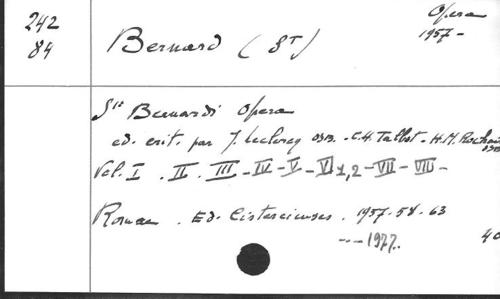 242
84
Bernard ( ST )
Opera
1957-
Sti Bernardi Opera
ed. crit. par J. Leclercq OSB. - C.H. Talbot - H.M. Rochais OSB
Vol. I . II . III - IV - V - VI 1,2 - VII - VIII -
Romae . Ed. Cistercienses . 1957. 58. 63
--- 1977.
40